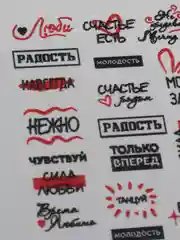 Люби
СЧАСТЬЕ
ЕСТЬ
РАДОСТЬ
МОЛОДОСТЬ
НАВСЕГДА
СЧАСТЬЕ
рядом
НЕЖНО
РАДОСТЬ
ЧУВСТВУЙ
ТОЛЬКО
ВПЕРЕД
СИЛА
ЛЮБВИ
ТАНЦУЙ
Будь
Любима
МОЛОДОСТЬ